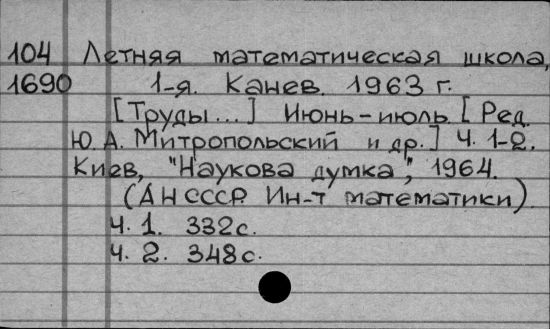 104 Летняя математическая школа,
1690 1-я. Канев. 1963 г.
[Труды...] Июнь-июль [Ред.
Ю. А. Митропольский и др.] Ч. 1-2.
Киев, "Наукова думка", 1964.
(АН СССР. Ин-т математики).
Ч. 1. 332с.
Ч. 2. 348с.